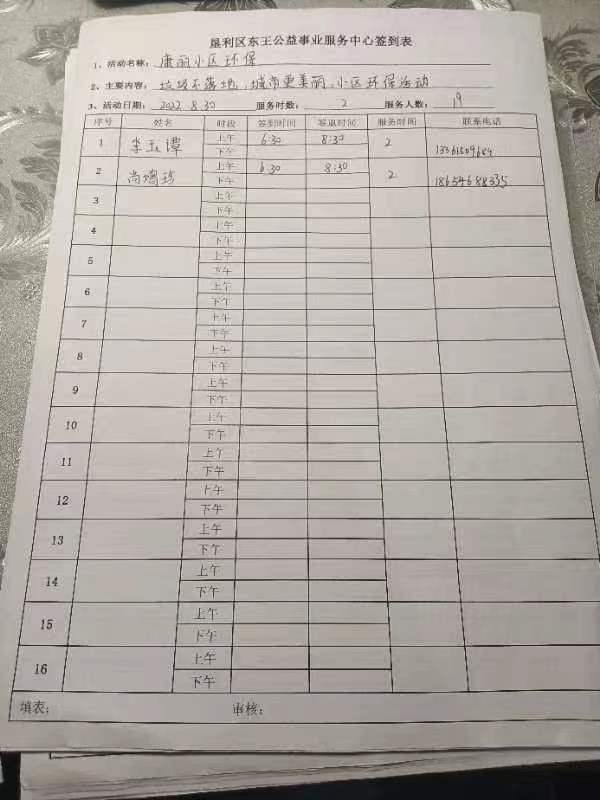 垦利区东王公益事业服务中心签到表
1、活动名称：康丽小区环保
2、主要内容：垃圾不落地，城市更美丽，小区环保活动
3、活动日期：2022 8.30 服务时数：2 服务人数：19
序号 姓名 时段 签到时间 签退时间 服务时间 联系电话
1 李玉谭 上午 6:30 8:30 2
下午
2 尚 上午 6:30 8:30 2
下午 18654688335
3 上午
下午
4 上午
下午
5 上午
下午
6 上午
下午
7 上午
下午
8 上午
下午
9 上午
下午
10 上午
下午
11 上午
下午
12 上午
下午
13 上午
下午
14 上午
下午
15 上午
下午
16 上午
下午
填表： 审核：